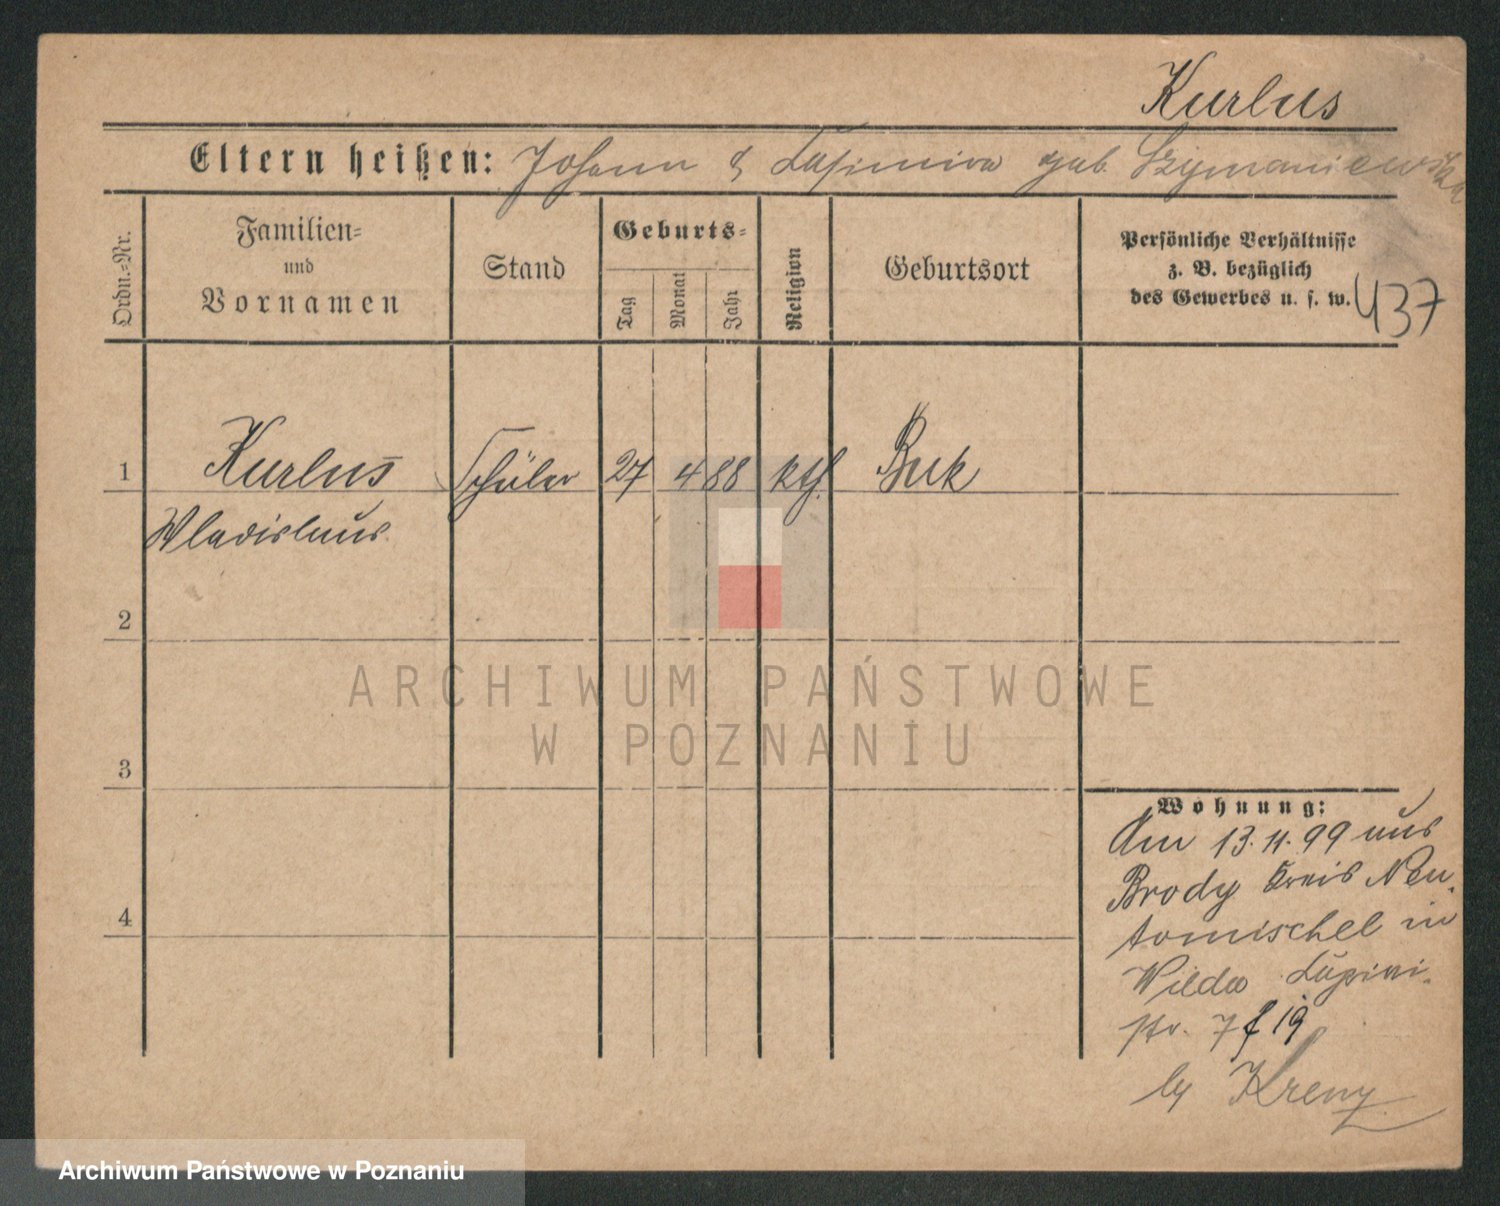 Kurlus
Eltern heißen: Johann & Kasimira geb. Szymaniewska
Ordn.-Nr.
Familien-
und
Vornamen
Stand
Geburts-
Tag
Monat
Jahr
Religion
Geburtsort
Persönliche Verhältnisse
z. B. bezüglich
des Gewerbes u. s. w.
437
1 Kurlus Schüler 27 4 88 kth. Buk
Wladislaus
2
3
4
Wohnung:
Am 13.11.99 aus
Brody Kreis Neu-
tomischel in
Wilda
str. 7 19
ARCHIWUM PAŃSTWOWE
W POZNANIU
Archiwum Państwowe w Poznaniu